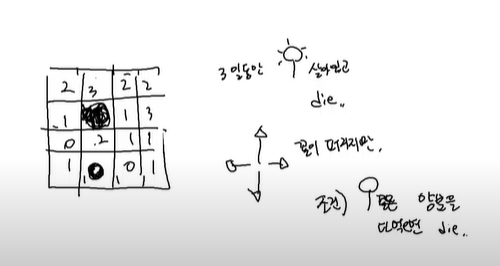 2 3 2 2
1 1 3
0 2 1 1
1 0 1
3일동안 살아있고
die..
꽃이 퍼지지만,
조건) 모든 양분을
다먹으면 die..